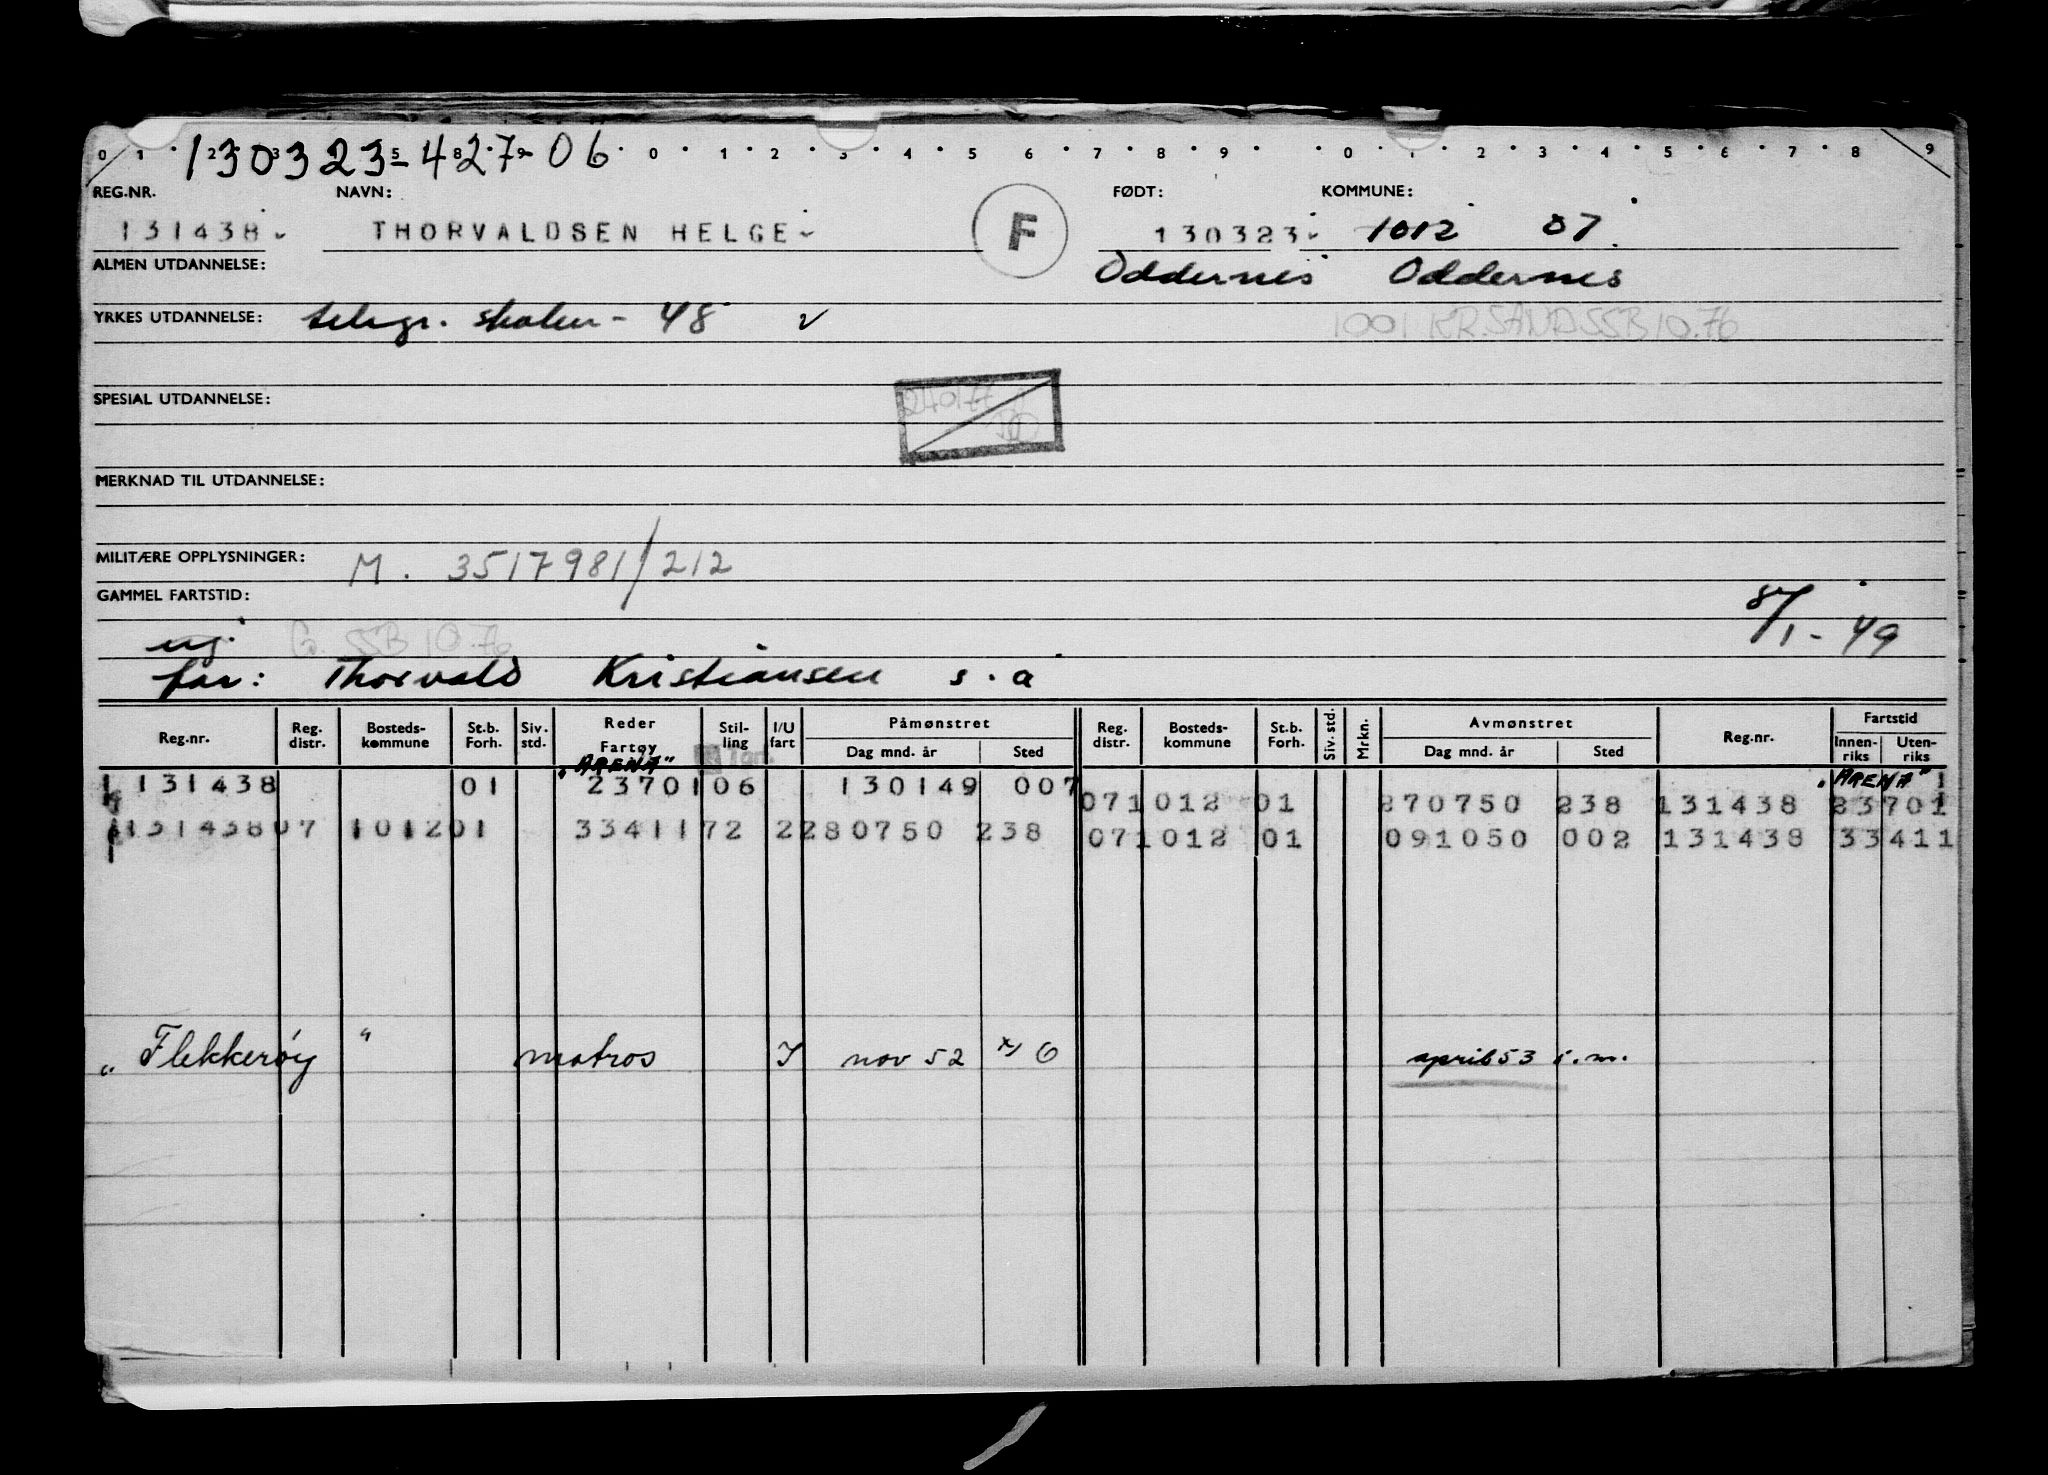 130323-427-06
0 1 2 3 5 8 9 0 1 2 3 4 5 6 7 8 9 0 1 2 3 4 5 6 7 8 9
REG.NR. NAVN: FØDT: KOMMUNE:
131438 THORVALDSEN HELGE F 130323 1012 07
ALMEN UTDANNELSE: Oddernes Oddernes
YRKES UTDANNELSE: telegr. skolen - 48 v 1001 KR.SAND SSB 10.76
SPESIAL UTDANNELSE: 240177
MERKNAD TIL UTDANNELSE:
MILITÆRE OPPLYSNINGER: M. 3517981/212
GAMMEL FARTSTID: 8/1-49
ug. G. SSB 10.76
far: Thorvald Kristiansen s.a
Reg.nr. Reg. distr. Bosteds-kommune St.b. Forh. Siv. std. Reder Fartøy Stil-ling I/U fart Påmønstret Dag mnd. år Sted Reg. distr. Bosteds-kommune St.b. Forh. Siv. std. Mrkn. Avmønstret Dag mnd. år Sted Reg.nr. Fartstid Innen-riks Uten-riks
"ARENA" "ARENA" 1
131438 01 2370106 130149 007
071012 01 270750 238 131438 23701
131438 07 101201 3341172 2280750 238 071012 01 091050 002 131438 33411
"Flekkerøy" matros I nov 52 x) O april 53 s.m.